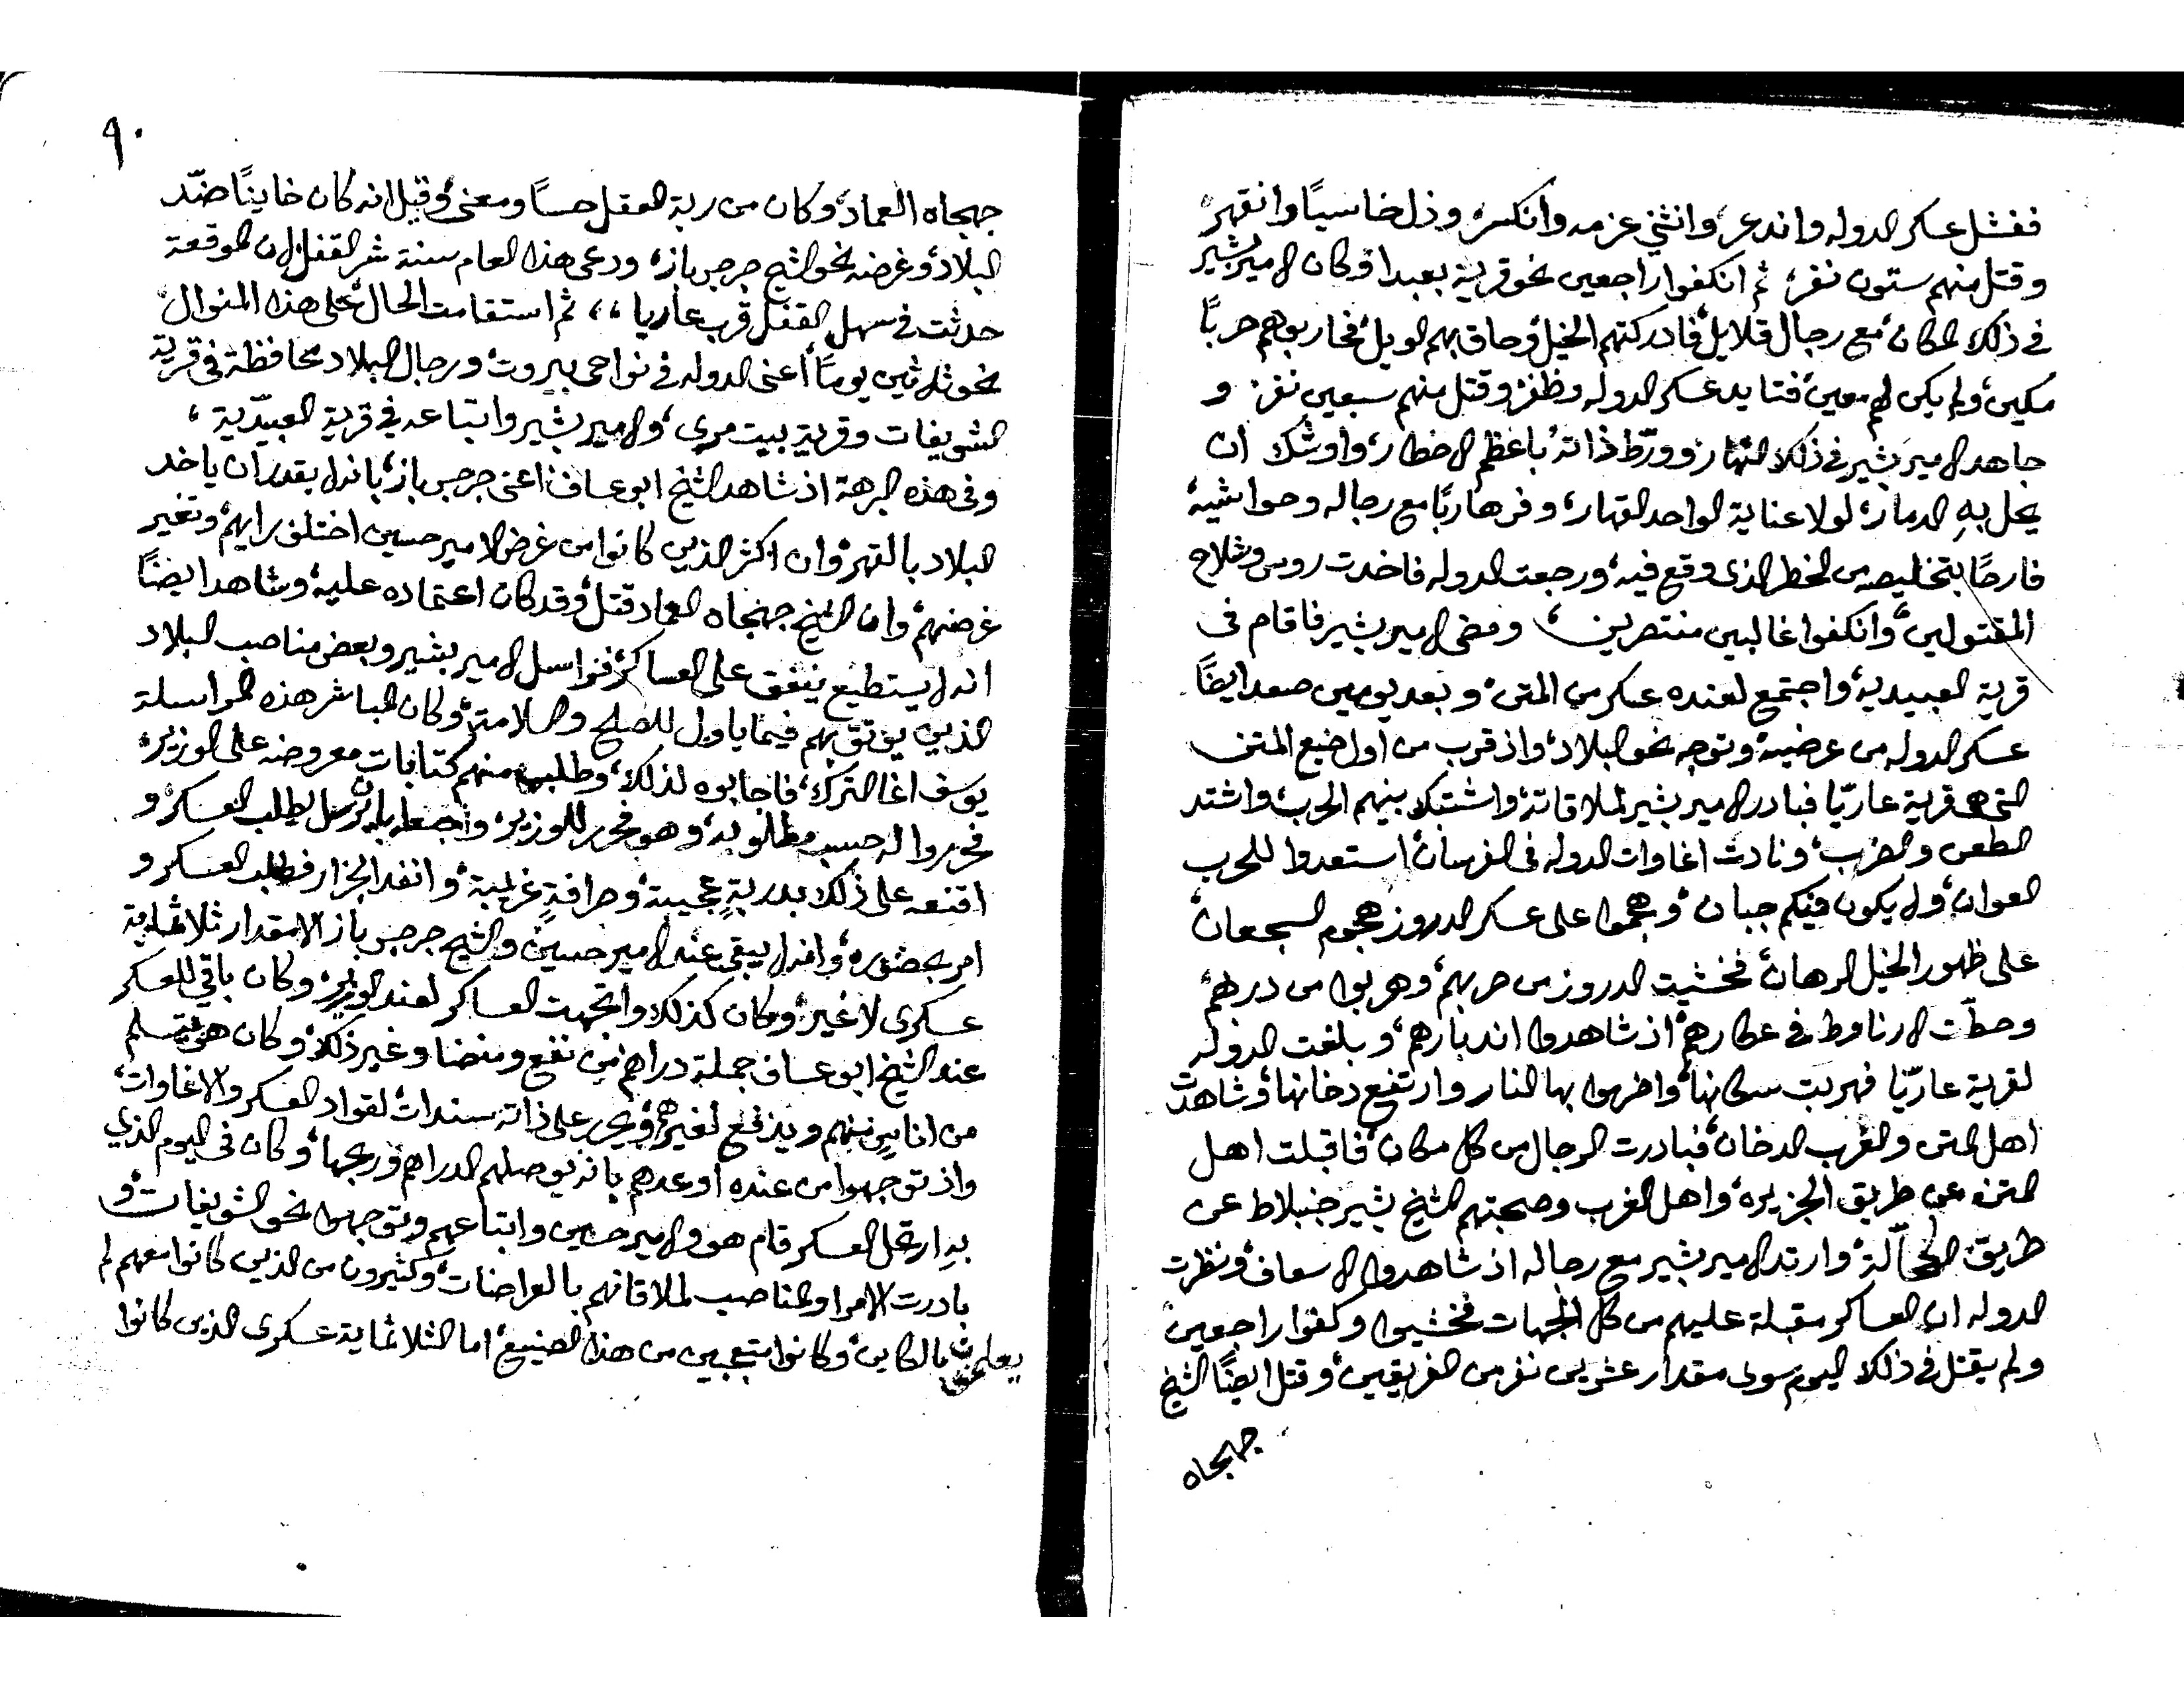 ففشل عسكر الدوله واندعر، وانثني عزمه وانكسر، وذل خاسيًا وانقهر
وقتل منهم ستون نفر، ثم انكفوا راجعين نحو قرية بعبدا، وكان الامير بشير
في ذلك المكان، مع رجال قلايل، فادركتهم الخيل، وحاق بهم الويل، فحاربوهم حربًا
مكين، ولم يكن لهم معين، فتايد عسكر الدوله وظفر، وقتل منهم سبعين نفر، و
جاهد الامير بشير في ذلك النهار، وورّط ذاته باعظم الاخطار، واوشك ان
يحل بهِ الدمار، لولا عناية الواحد القهار، وفر هاربًا مع رجاله وحواشيه،
فارحًا بتخليصه من الخطر الذى وقع فيه، ورجعت الدوله فاخدت روس وشلاح
المقتولين، وانكفوا غالبين منتصرين، ومضى الامير بشير فاقام فى
قرية العبيديه، واجتمع لعنده عسكر من المتن، وبعد يومين صعد ايضًا
عسكر الدوله من عرضيه، وتوجه نحو البلاد، واذ قرب من اول ضيع المتن
التى هى قرية عاريّا فبادر الامير بشير لملاقاته، واشتبك بينهم الحرب، واشتد
الطعن والضرب، ونادت اغاوات الدوله فى الفرسان، استعدوا للحرب
العوان، ولا يكون فيكم جبان، وهجموا على عسكر الدروز هجوم السجعان،
على ظهور الخيل الرهان، فخشيت الدروز من حربهم، وهربوا من دربهم
وحطّت الارناوط فى عكارهم، اذ شاهدوا اندبارهم، وبلغت الدوله
لقرية عاريّا فهربت سكانها، واضرموا بها النار وارتفع دخانها، وشاهدت
اهل المتن والغرب الدخان، فبادرت الرجال من كل مكان، فاقبلت اهل
المتن عن طريق الجزيره، واهل الغرب وصحبتهم الشيخ بشير جنبلاط عن
طريق الكحّالة، وارتد الامير بشير مع رجاله اذ شاهدوا الاسعاف، ونظرت
الدوله ان العساكر مقبلة عليهم من كل الجهات فخشيوا وكفوا راجعين
ولم يقتل فى ذلك اليوم سوى مقدار عشرين نفر من الفريقين، وقتل ايضًا الشيخ
جهجاه
٩٠
جهجاه العماد، وكان من ربة العقل حسًا ومعنى، وقيل انه كان خاينًا ضدّ
البلاد، وغرضه نحو الشيخ جرجس باز، ودعى هذا العام سنة شر القفل، لان الموقعة
حدثت فى سهل القفل قرب عاريا ،، ثم استقامت الحال على هذا المنوال
نحو ثلاثين يومًا، اعنى الدوله فى نواحى بيروت، ورجال البلاد محافظة فى قرية
الشويفات وقرية بيت مرى، والامير بشير واتباعه فى قرية العبيدّية،
وفى هذه البرهة اذ شاهد الشيخ ابو عساف اعنى جرجس باز، بانه لا يقدر ان ياخد
البلاد بالقهر، وان اكثر الذين كانوا من غرض الامير حسين اختلف رايهم، وتغير
غرضهم، وان الشيخ جهجاه العماد قتل، وقد كان اعتماده عليه، وشاهد ايضًا
انه لا يستطيع ينفق على العساكر، فراسل الامير بشير وبعض مناصب البلاد
الذين يوثق بهم فيما ياول للصلح والسلامة، وكان المباشر هذه المراسلة
يوسف اغا الترك، فاجابوه لذلك، وطلب منهم كتابات معروضه على الوزير،
فحرروا له حسب مطلوبه، وهو فحرر للوزير، بان يرسل يطلب العسكر، و
اقنعه على ذلك بدربةٍ عجيبة، وحرافةٍ غريبة، وانفد الجزار فطلب العسكر و
امر بحضوره، وانه لا يبقى عند الامير حسين والشيخ جرجس باز الا مقدار ثلاثماية
عسكرى لا غير، وكان كذلك واتجهت العساكر لعند الوزير، وكان باقي للعسكر
عند الشيخ ابو عساف جملة دراهم من نفع ومنضا وغير ذلك، وكان هو يتسلم
من اناسٍ منهم ويدفع لغيرهم، ويحرر على ذاته سندات، لقواد العسكر والاغاوات،
واذ توجهوا من عنده اوعدهم بانه يوصلهم الدراهم وربحها، وكان فى اليوم الذي
بهِ ارتحل العسكر قام هو والامير حسين واتباعهم وتوجهوا نحو الشويفات، و
بادرت الامرا والمناصب لملاقاتهم بالعراضات، وكثيرون من الذين كانوا معهم لم
يعلمون بالكاين، وكانوا متعجبين من هذا الصنيع، اما الثلاثماية عسكرى الذين كانوا